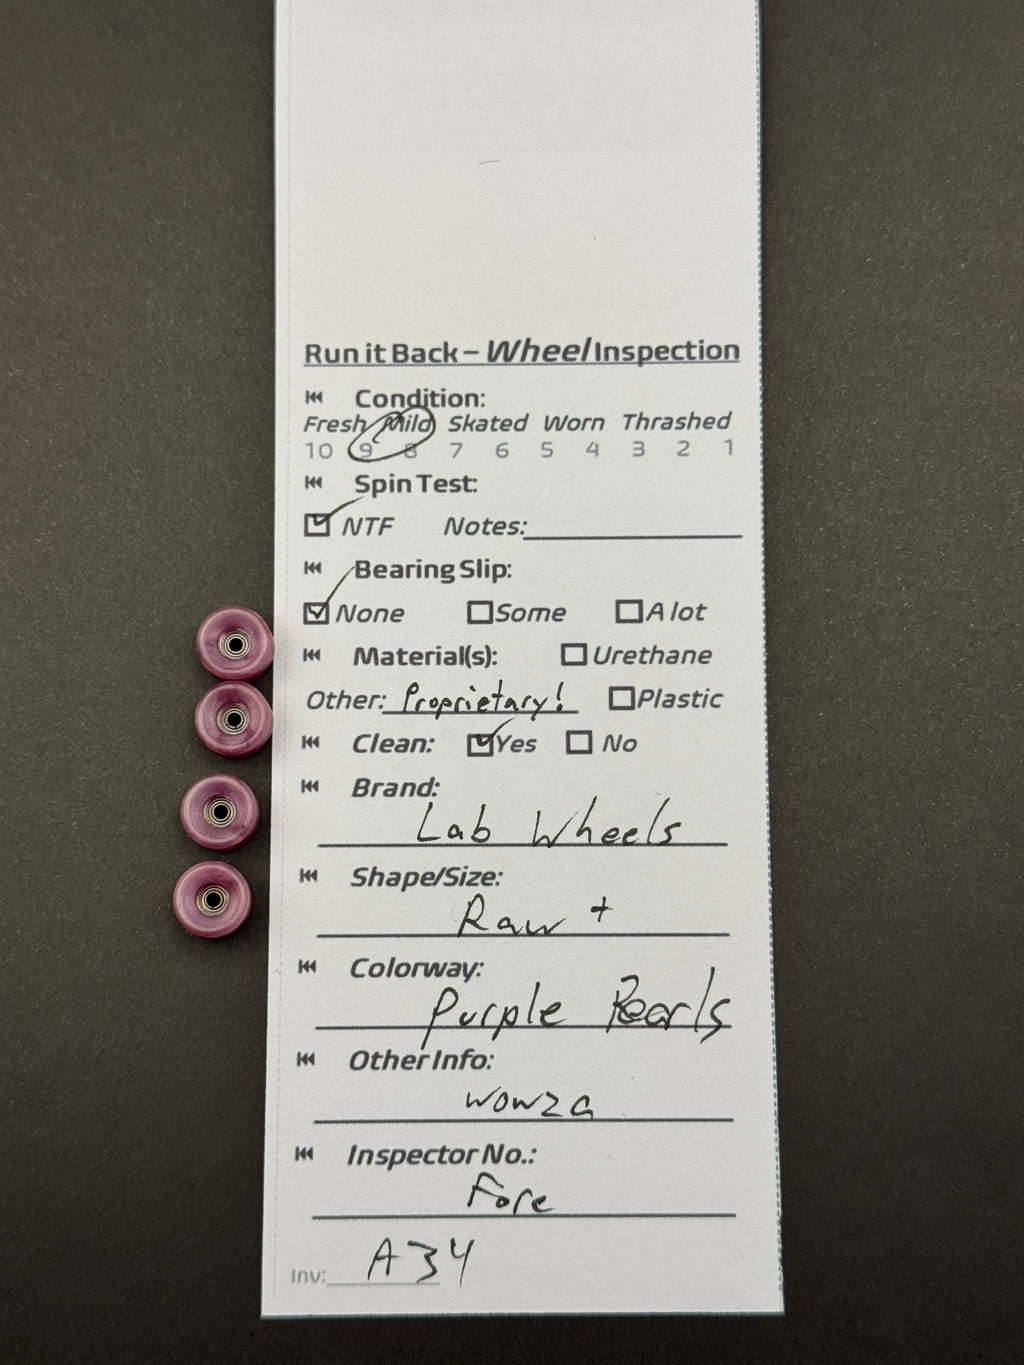 Run it Back – Wheel Inspection
Condition:
Fresh Mild Skated Worn Thrashed
10 9 8 7 6 5 4 3 2 1
Spin Test:
NTF Notes:
Bearing Slip:
None Some A lot
Material(s): Urethane
Other: Proprietary! Plastic
Clean: Yes No
Brand:
Lab Wheels
Shape/Size:
Raw +
Colorway:
Purple Pearls
Other Info:
wowza
Inspector No.:
Fore
Inv: A34